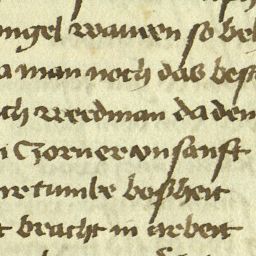 ngel waren so be
a man noch das best
ch werdman da den
Zorn er unsanft
tumbe bosheit
t bracht in arbeit